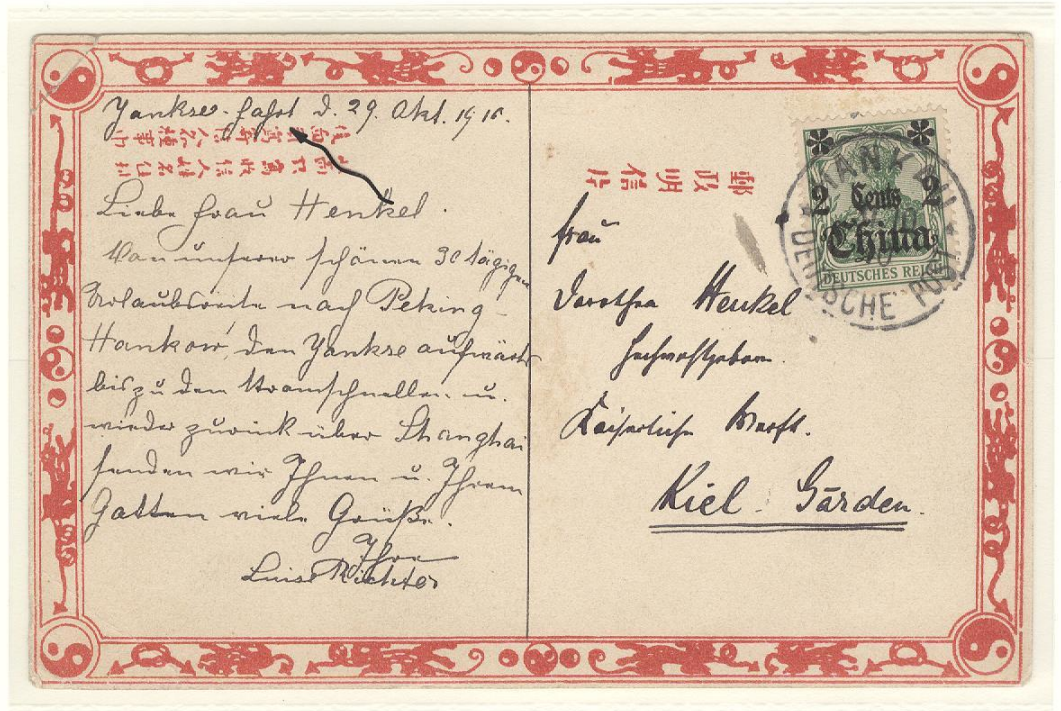 Yanktse-fahrt d. 29. Okt. 1910.
Liebe Frau Henkel.
Von unserer schönen 30 tägigen
Urlaubsreise nach Peking-
Hankow, den Yanktse aufwärts
bis zu den Stromschnellen u.
wieder zurück über Shanghai
senden wir Ihnen u. Ihrem
Gatten viele Grüße.
Ihre
Luise Richter
郵政明信片
2 Cents 2
China
DEUTSCHES REICH
HANKAU
DEUTSCHE POST
Frau
Dorothea Henkel
Hochwohlgeboren.
Kaiserliche Werft.
Kiel-Gaarden.